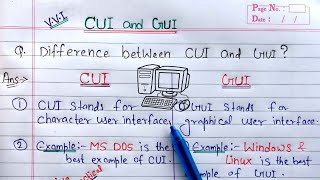 V.V.I
CUI and GUI
Page No. :
Date : / /
Q. Difference between CUI and GUI ?
Ans:-
CUI
GUI
① CUI stands for
character user interface,
GUI stands for
graphical user interface.
② Example:- MS DOS is the
best example of CUI.
② Example:- Windows &
Linux is the best
example of GUI.